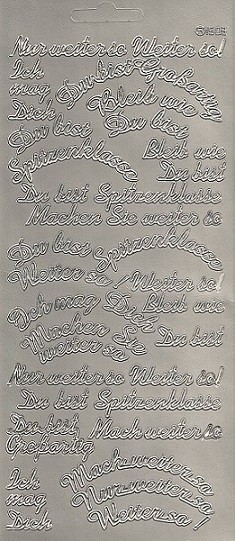 Nur weiter so Weiter so!
Ich
mag
Dich
Du bist Großartig
Bleib wie
Du bist
Du bist
Spitzenklasse
Bleib wie
Du bist
Du bist Spitzenklasse
Machen Sie weiter so
Du bist Spitzenklasse
Weiter so! Weiter so!
Ich mag Dich
Bleib wie
Du bist
Machen Sie
weiter so
Nur weiter so Weiter so!
Du bist Spitzenklasse
Du bist
Großartig
Mach weiter so
Ich
mag
Dich
Mach weiter so
Nur weiter so
Weiter so!